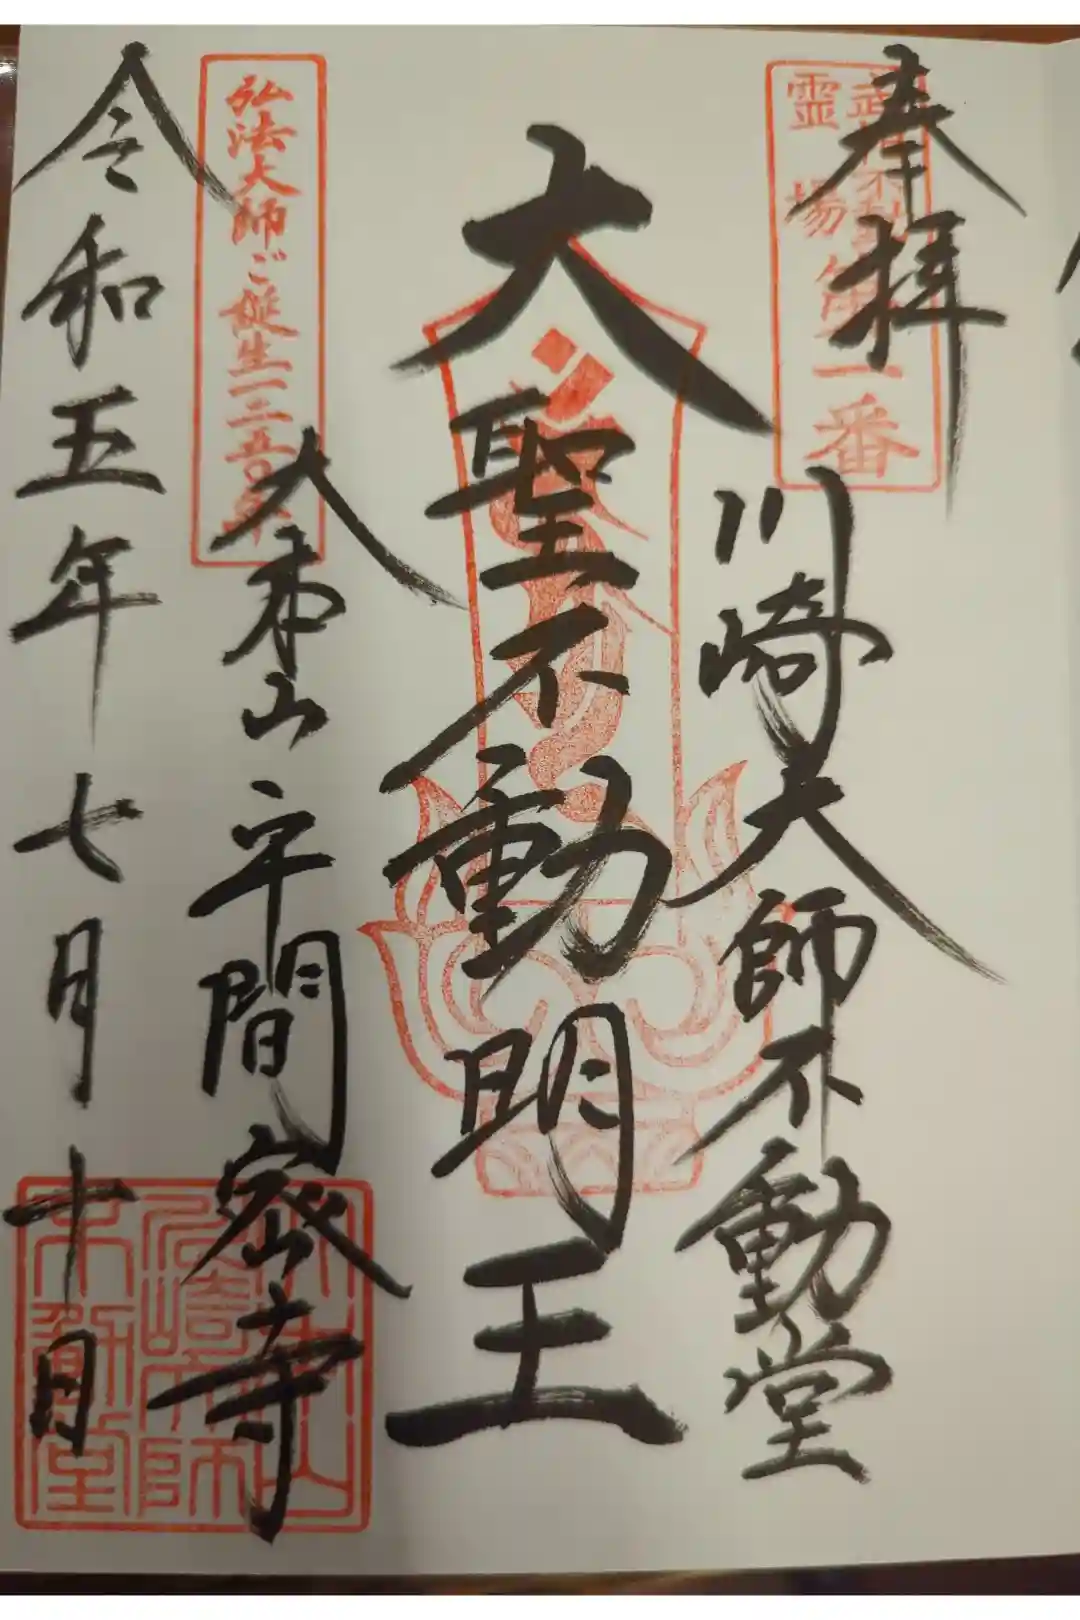 奉拝
霊場第一番
川崎大師不動堂
大聖不動明王
弘法大師ご誕生一二五〇年
大本山平間密寺
令和五年七月十日